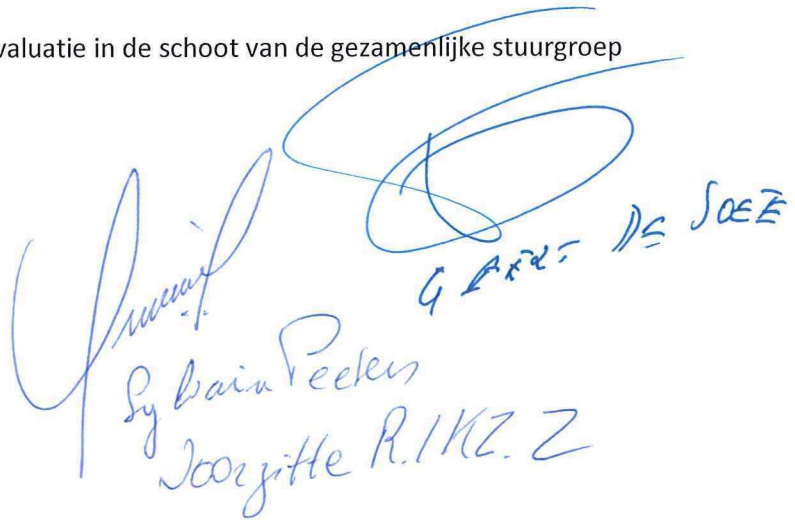 valuatie in de schoot van de gezamenlijke stuurgroep
GEERT DE SOETE
Sylvain Peeters
Voorzitte R.I KZ. Z